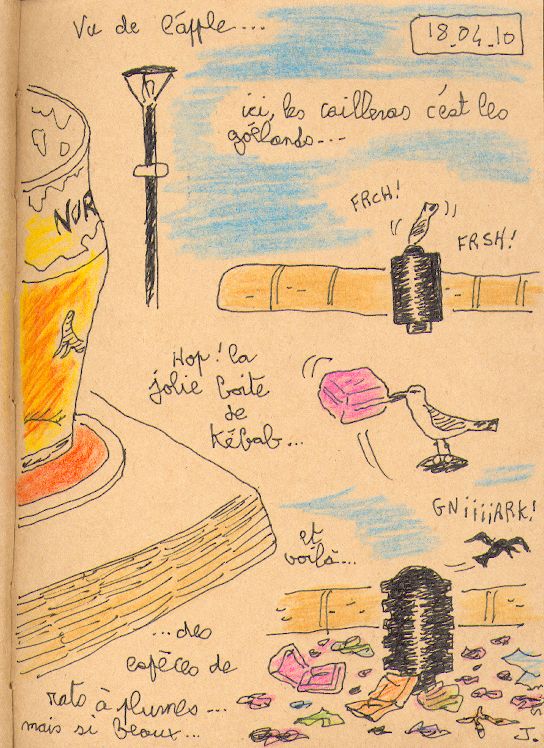 Vu de l'Apple....
18_04_10
ici, les cailleras c'est les
goélands...
FRCH!
FRSH!
NOR
Hop! la
jolie boite
de
kébab...
GNiiiiARK!
et
voilà...
...des
espèces de
rats à plumes...
mais si beaux...
J.